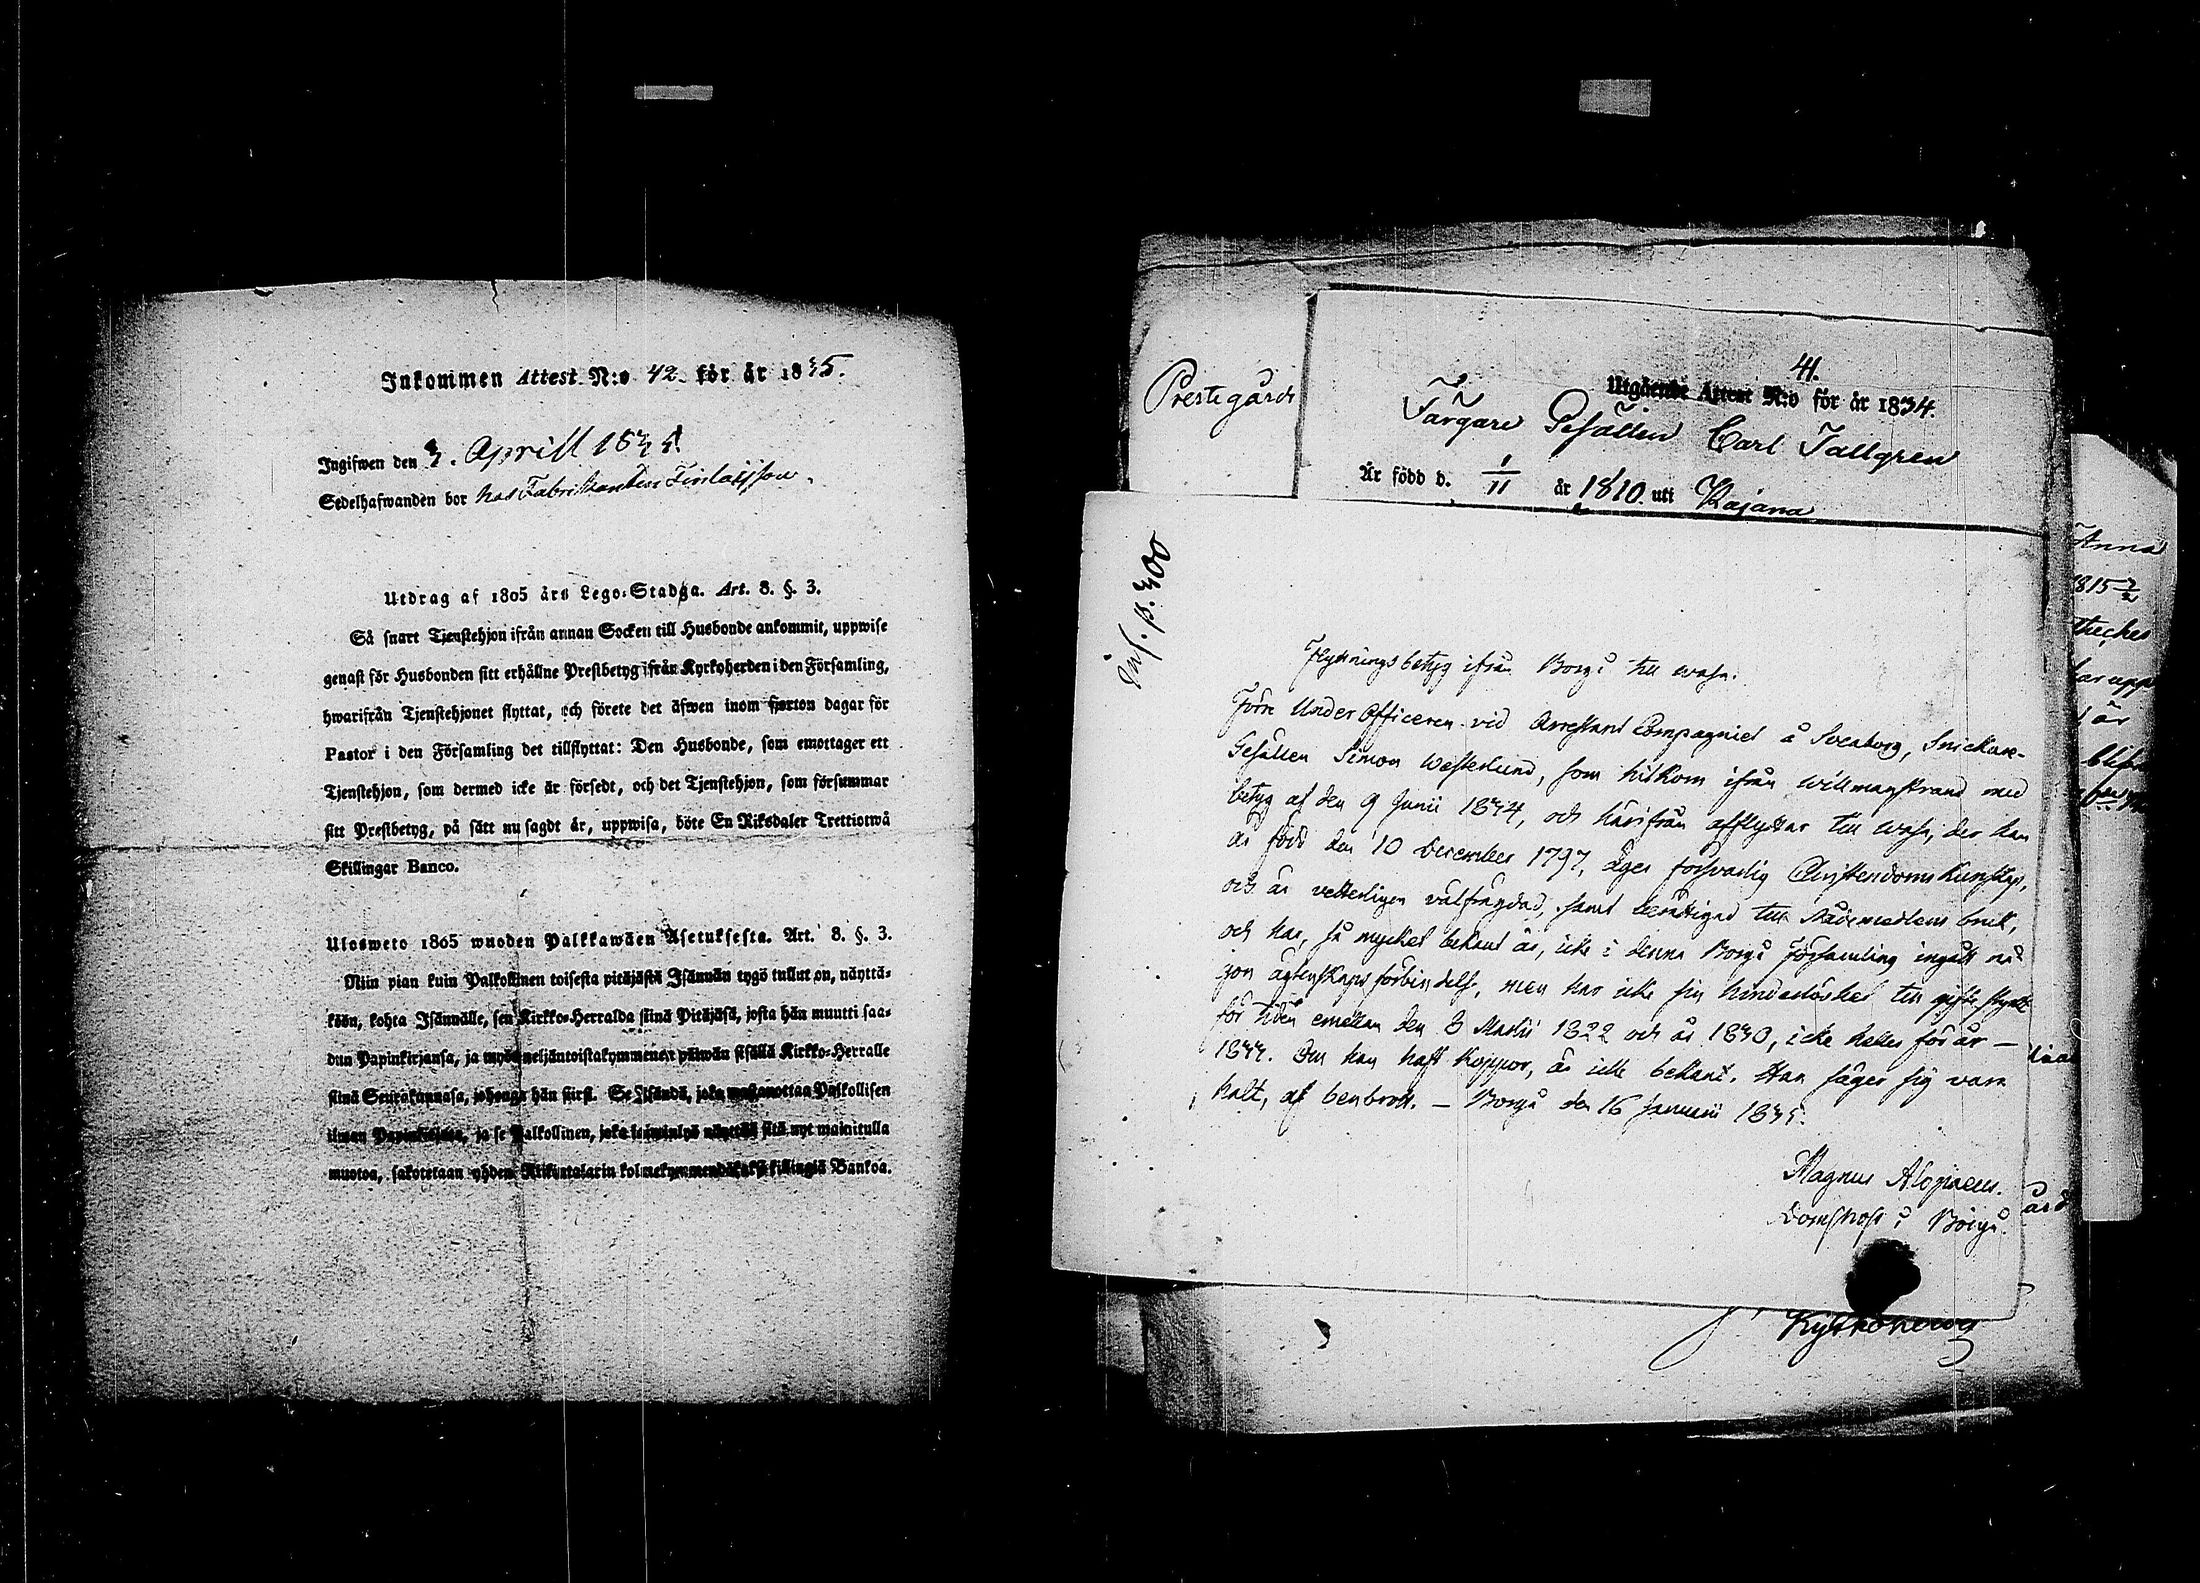 Inkommen Attest N:o 42 för år 1835.
Ingifwen den 3. Aprill 1835
Sedelhafwanden bor hos Fabrikanten Finlaisson.
Utdrag af 1805 års Lego-Stadga. Art. 8. §. 3.
Så snart Tjenstehjon ifrån annan Socken till Husbonde ankommit, uppwise
genast för Husbonden sitt erhållne Prestbetyg ifrån Kyrkoherden i den Församling,
hwarifrån Tjenstehjonet flyttat, och förete det äfwen inom fjorton dagar för
Pastor i den Församling det tillflyttat: Den Husbonde, som emottager ett
Tjenstehjon, som dermed icke är försedt, och det Tjenstehjon, som försummar
sitt Prestbetyg, på sätt nu sagdt är, uppwisa, böte En Riksdaler Trettiotwå
Skillingar Banco.
Ulosweto 1865 wuoden Palkkawäen Asetuksesta. Art. 8. §. 3.
Niin pian kuin Palkollinen toisesta pitäjästä Isännän tygö tullut on, näyttä-
köön, kohta Isännälle, sen Kirkko-Herralda siinä Pitäjäsä, josta hän muutti saa-
dun Papinkirjansa, ja myös neljäntoistakymmenen päiwän sisällä Kirkko-Herralle
siinä Seurakunnasa, johonga hän siirsi. Se Isändä, joka wastanottaa Palkollisen
ilman Papinkirjata, ja se Palkollinen, joka laiminlyö näyttää sitä nyt mainitulla
muotoa, sakotetaan yhden Riikintalarin kolmekymmendäkaksi killingiä Bankoa.
Prestegårds
41.
Utgående Attest N:o för år 1834.
Färgare Gesällen Carl Tallgren
Är född d. 1/11 år 1810 uti Kajana
inf. p. 300
Flyttningsbetyg ifrån Borgå till Wasa.
Förre Under Officeren vid Arrestant Compagniet å Sveaborg, Snickare-
Gesällen Simon Westerlund, som hitkom ifrån Willmanstrand med
betyg af den 9 Junii 1834, och härifrån afflyttar till Wasa, der han
är född den 10 December 1797, äger försvarlig Christendoms Kunskap,
och är vetterligen välfrägdad, samt berättigad till Nådemedlens bruk,
och har, så mycket bekant är, icke i denna Borgå Församling ingått nå-
gon ägtenskaps förbindelse, men har icke sin hinderlöshet till gifte styrkt
för tiden emellan den 3 Martii 1822 och år 1830, icke heller för år —
1833. Om han haft Koppor, är icke bekant. Han säger sig vara
halt, af benbrott. — Borgå den 16 Januarii 1835.
Magnus Alopaeus.
Domprost i Borgå.
Kyrkoherde
Anna
1815
är
ård